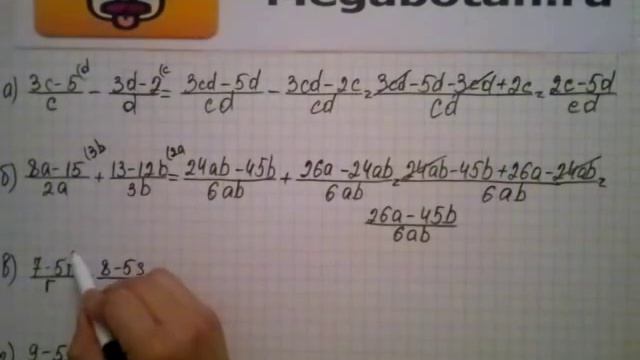 Megabotan.ru
а) 3c-5/c (d - 3d-2/d (c = 3cd-5d/cd - 3cd-2c/cd = 3cd-5d-3cd+2c/cd = 2c-5d/cd
б) 8a-15/2a (3b + 13-12b/3b (2a = 24ab-45b/6ab + 26a-24ab/6ab = 24ab-45b+26a-24ab/6ab =
26a-45b/6ab
в) 7-5r/r 8-5s
9-5